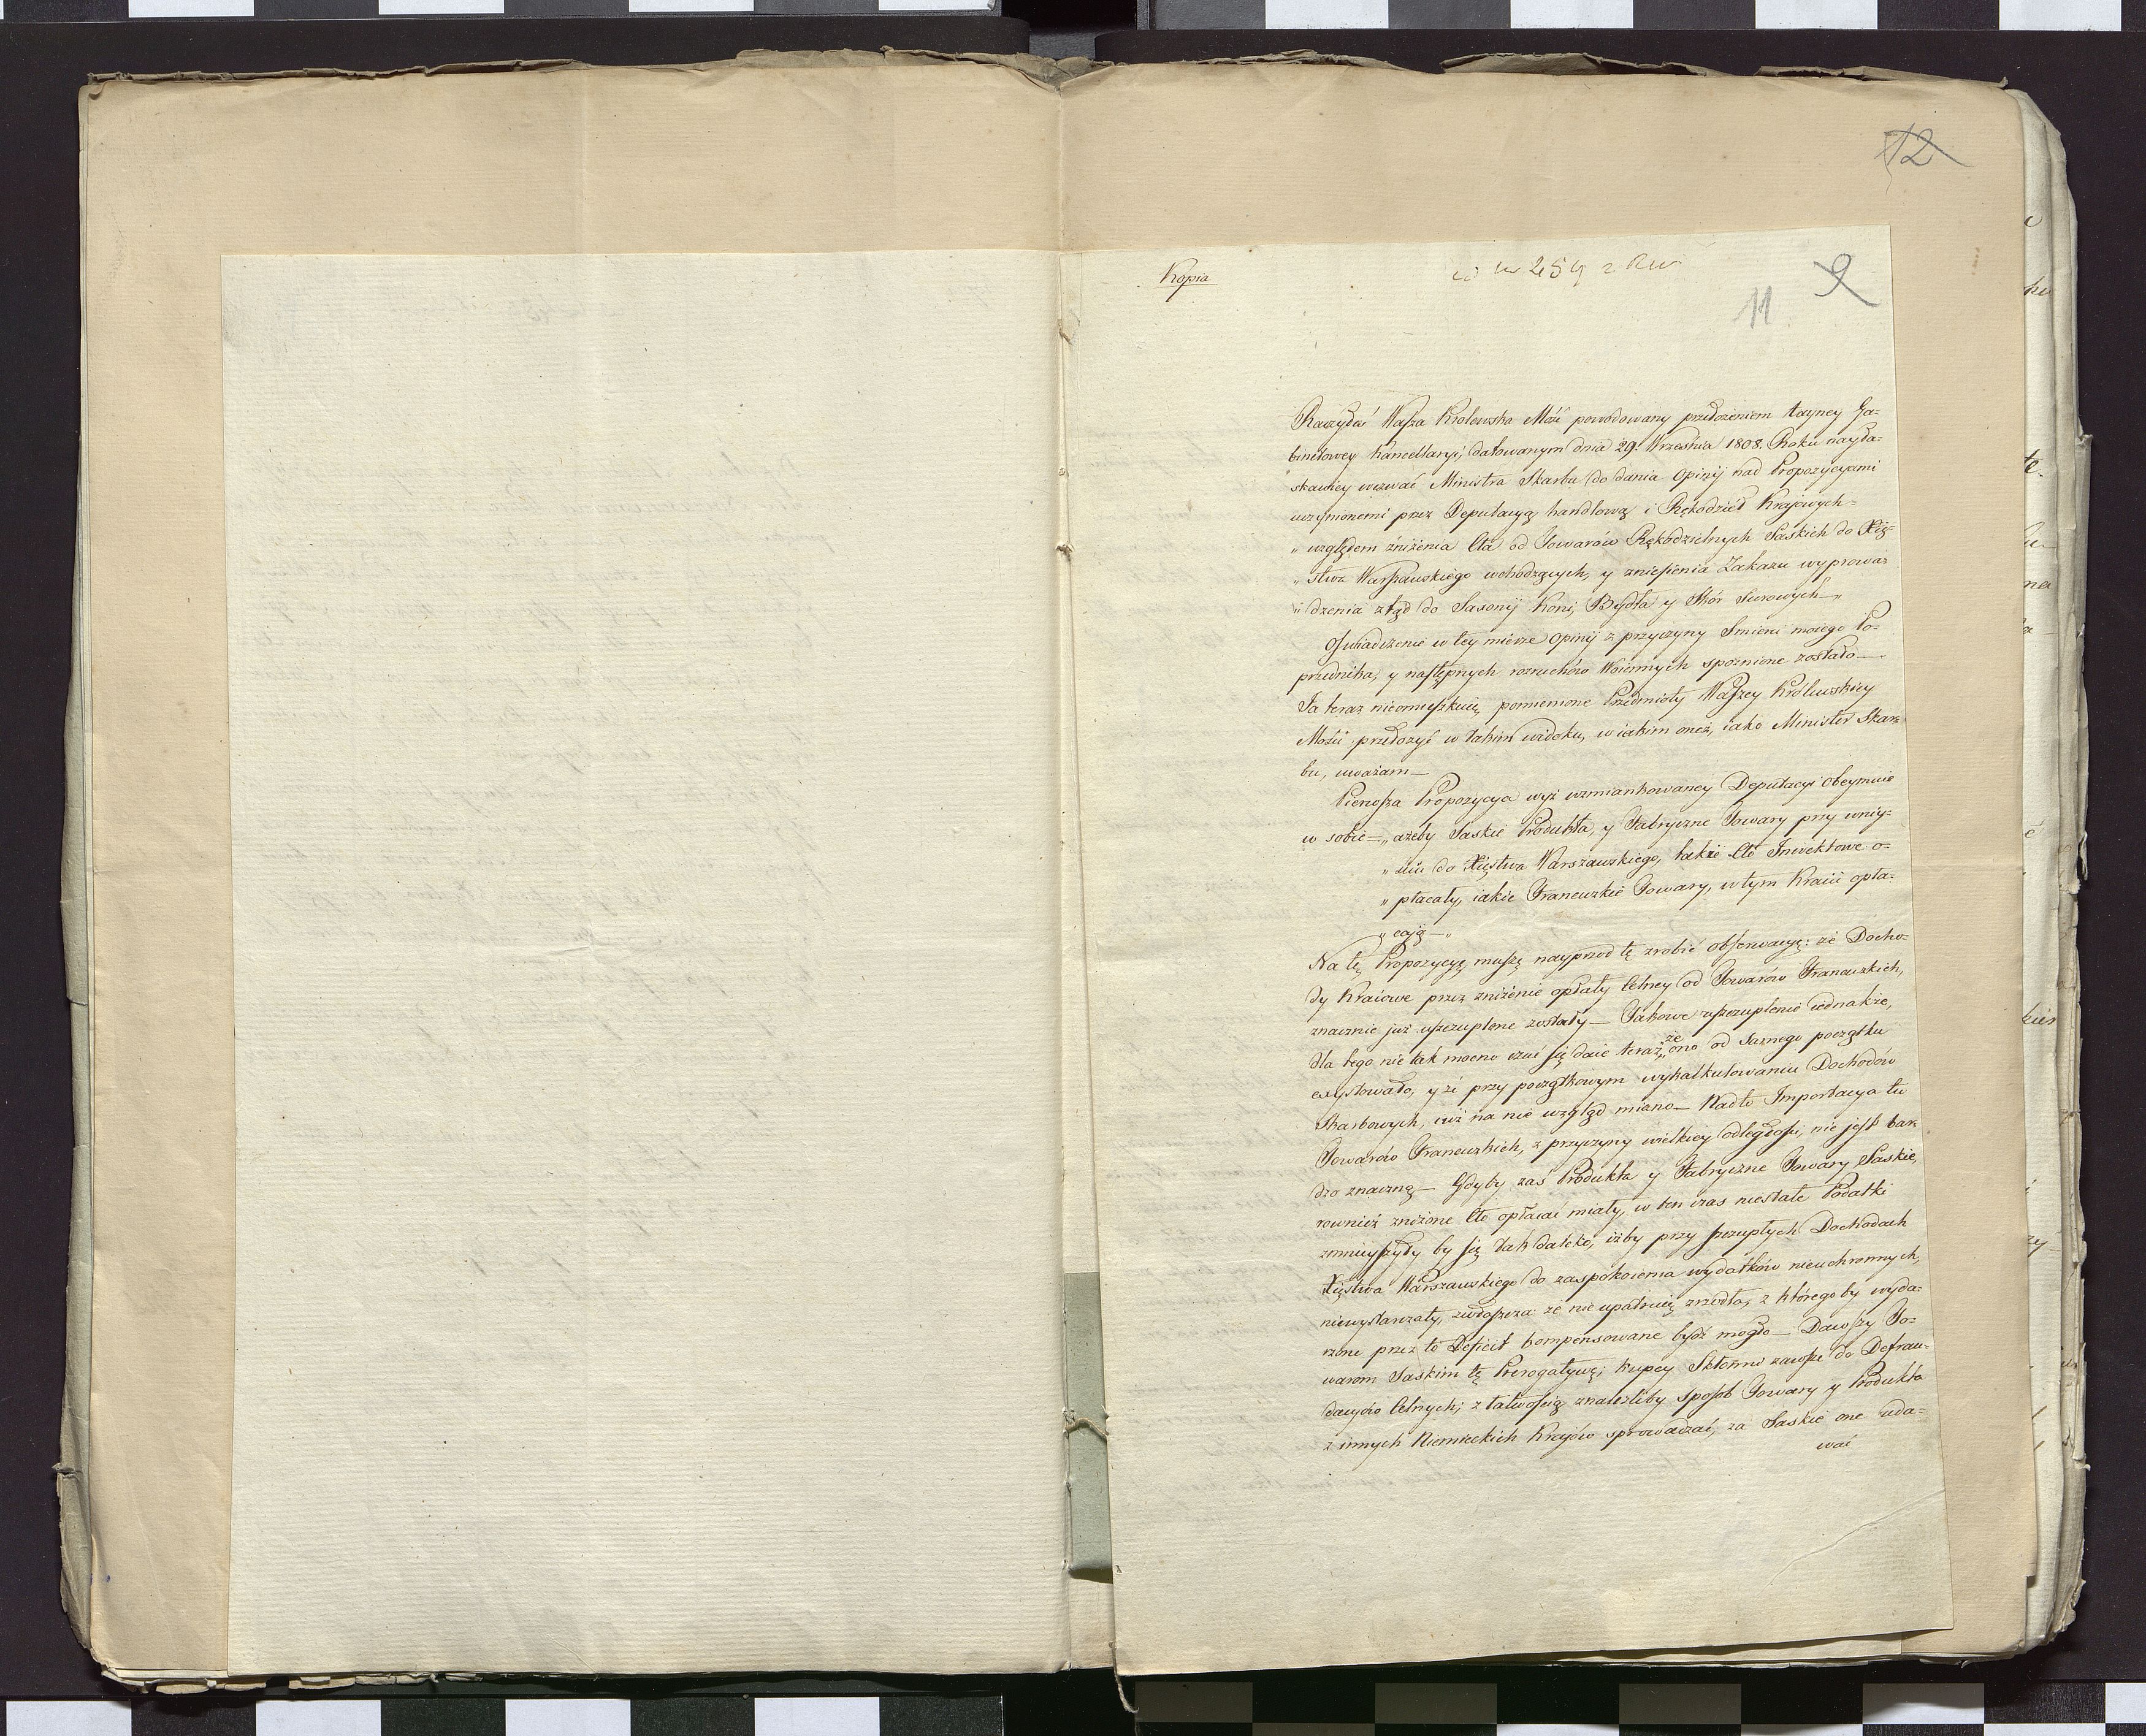 12
Kopia
259
9
11
Raczyłaś Wasza Krolewska Mość powodowany przełożeniem tayney Ga-
binetowey Kancellaryi, datowanym dnia 29. Września 1808. Roku nayła-
skawiey wezwać Ministra Skarbu do dania Opinij nad Propozycyami
uczynionemi przez Deputacyą handlową i Rękodzieł Krajowych-
„ względem zniżenia Cła od Towarów Rękodzielnych Saskich do Xię-
„ stwa Warszawskiego wchodzących, y zniesienia Zakazu wyprowa-
„ dzenia ztąd do Saxonij Koni, Bydła y Skór Surowych—„
Oświadczenie w tey mierze Opinij z przyczyny Smierci moiego Po-
przednika, y następnych rozruchów Woiennych spoznione zostało—
Ja teraz nieomieszkuię, pomienione Przedmioty Waszey Królewskiey
Mości przełożyć w takim widoku, w iakim oneż, iako Minister Skar-
bu, uważam—
Pierwsza Propozycya wyż wzmiankowaney Deputacyi obeymuie
w sobie—„ ażeby Saskie Produkta, y Fabryczne Towary przy wniy-
„ ściu do Xięstwa Warszawskiego, takie Cło Inwektowe o-
„ płacały, iakie Francuzkie Towary, w tym Kraiu opła-
„ cają—„
Na tę Propozycyę muszę nayprzod tę zrobić obserwacyę: że Docho-
dy Kraiowe przez zniżenie opłaty Celney od Towarów Francuzkich,
znacznie już uszczuplone zostały— Takowe uszczuplenie iednakże,
dla tego nie tak mocno czuć się daie teraz, że ono od samego początku
exystowało, y że przy początkowym wykalkulowaniu Dochodów
Skarbowych, iuż na nie wzgląd miano— Nadto Importacya tu
Towarów Francuzkich, z przyczyny wielkiey odległości, nie jest bar-
dzo znaczną— Gdyby zaś Produkta y Fabryczne Towary Saskie,
rownież zniżone Cło opłacać miały, w ten czas niestałe Podatki
zmnieyszyły by się tak daleko, iżby przy szczupłych Dochodach
Xięstwa Warszawskiego do zaspokoienia wydatków nieuchronnych,
niewystarczały, zwłaszcza: że nie upatruię zrzodła, z którego by wyda-
rzone przez to Deficit kompensowane bydź mogło— Dawszy To-
warom Saskim tę Prerogatywę; kupcy Skłonni zawsze do Defrau-
dacyów Celnych; z łatwością znaleźliby sposob Towary y Produkta
z innych Niemieckich Krajów sprowadzać, za Saskie one uda-
wać